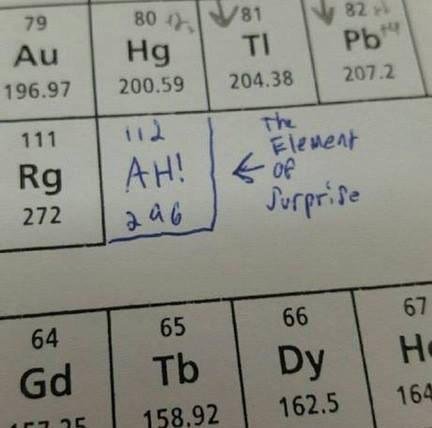 79 80 81 82
Au Hg Tl Pb
196.97 200.59 204.38 207.2
111 112
Rg AH!
272 296
The
Element
← Of
Surprise
64 65 66 67
Gd Tb Dy
158.92 162.5 164